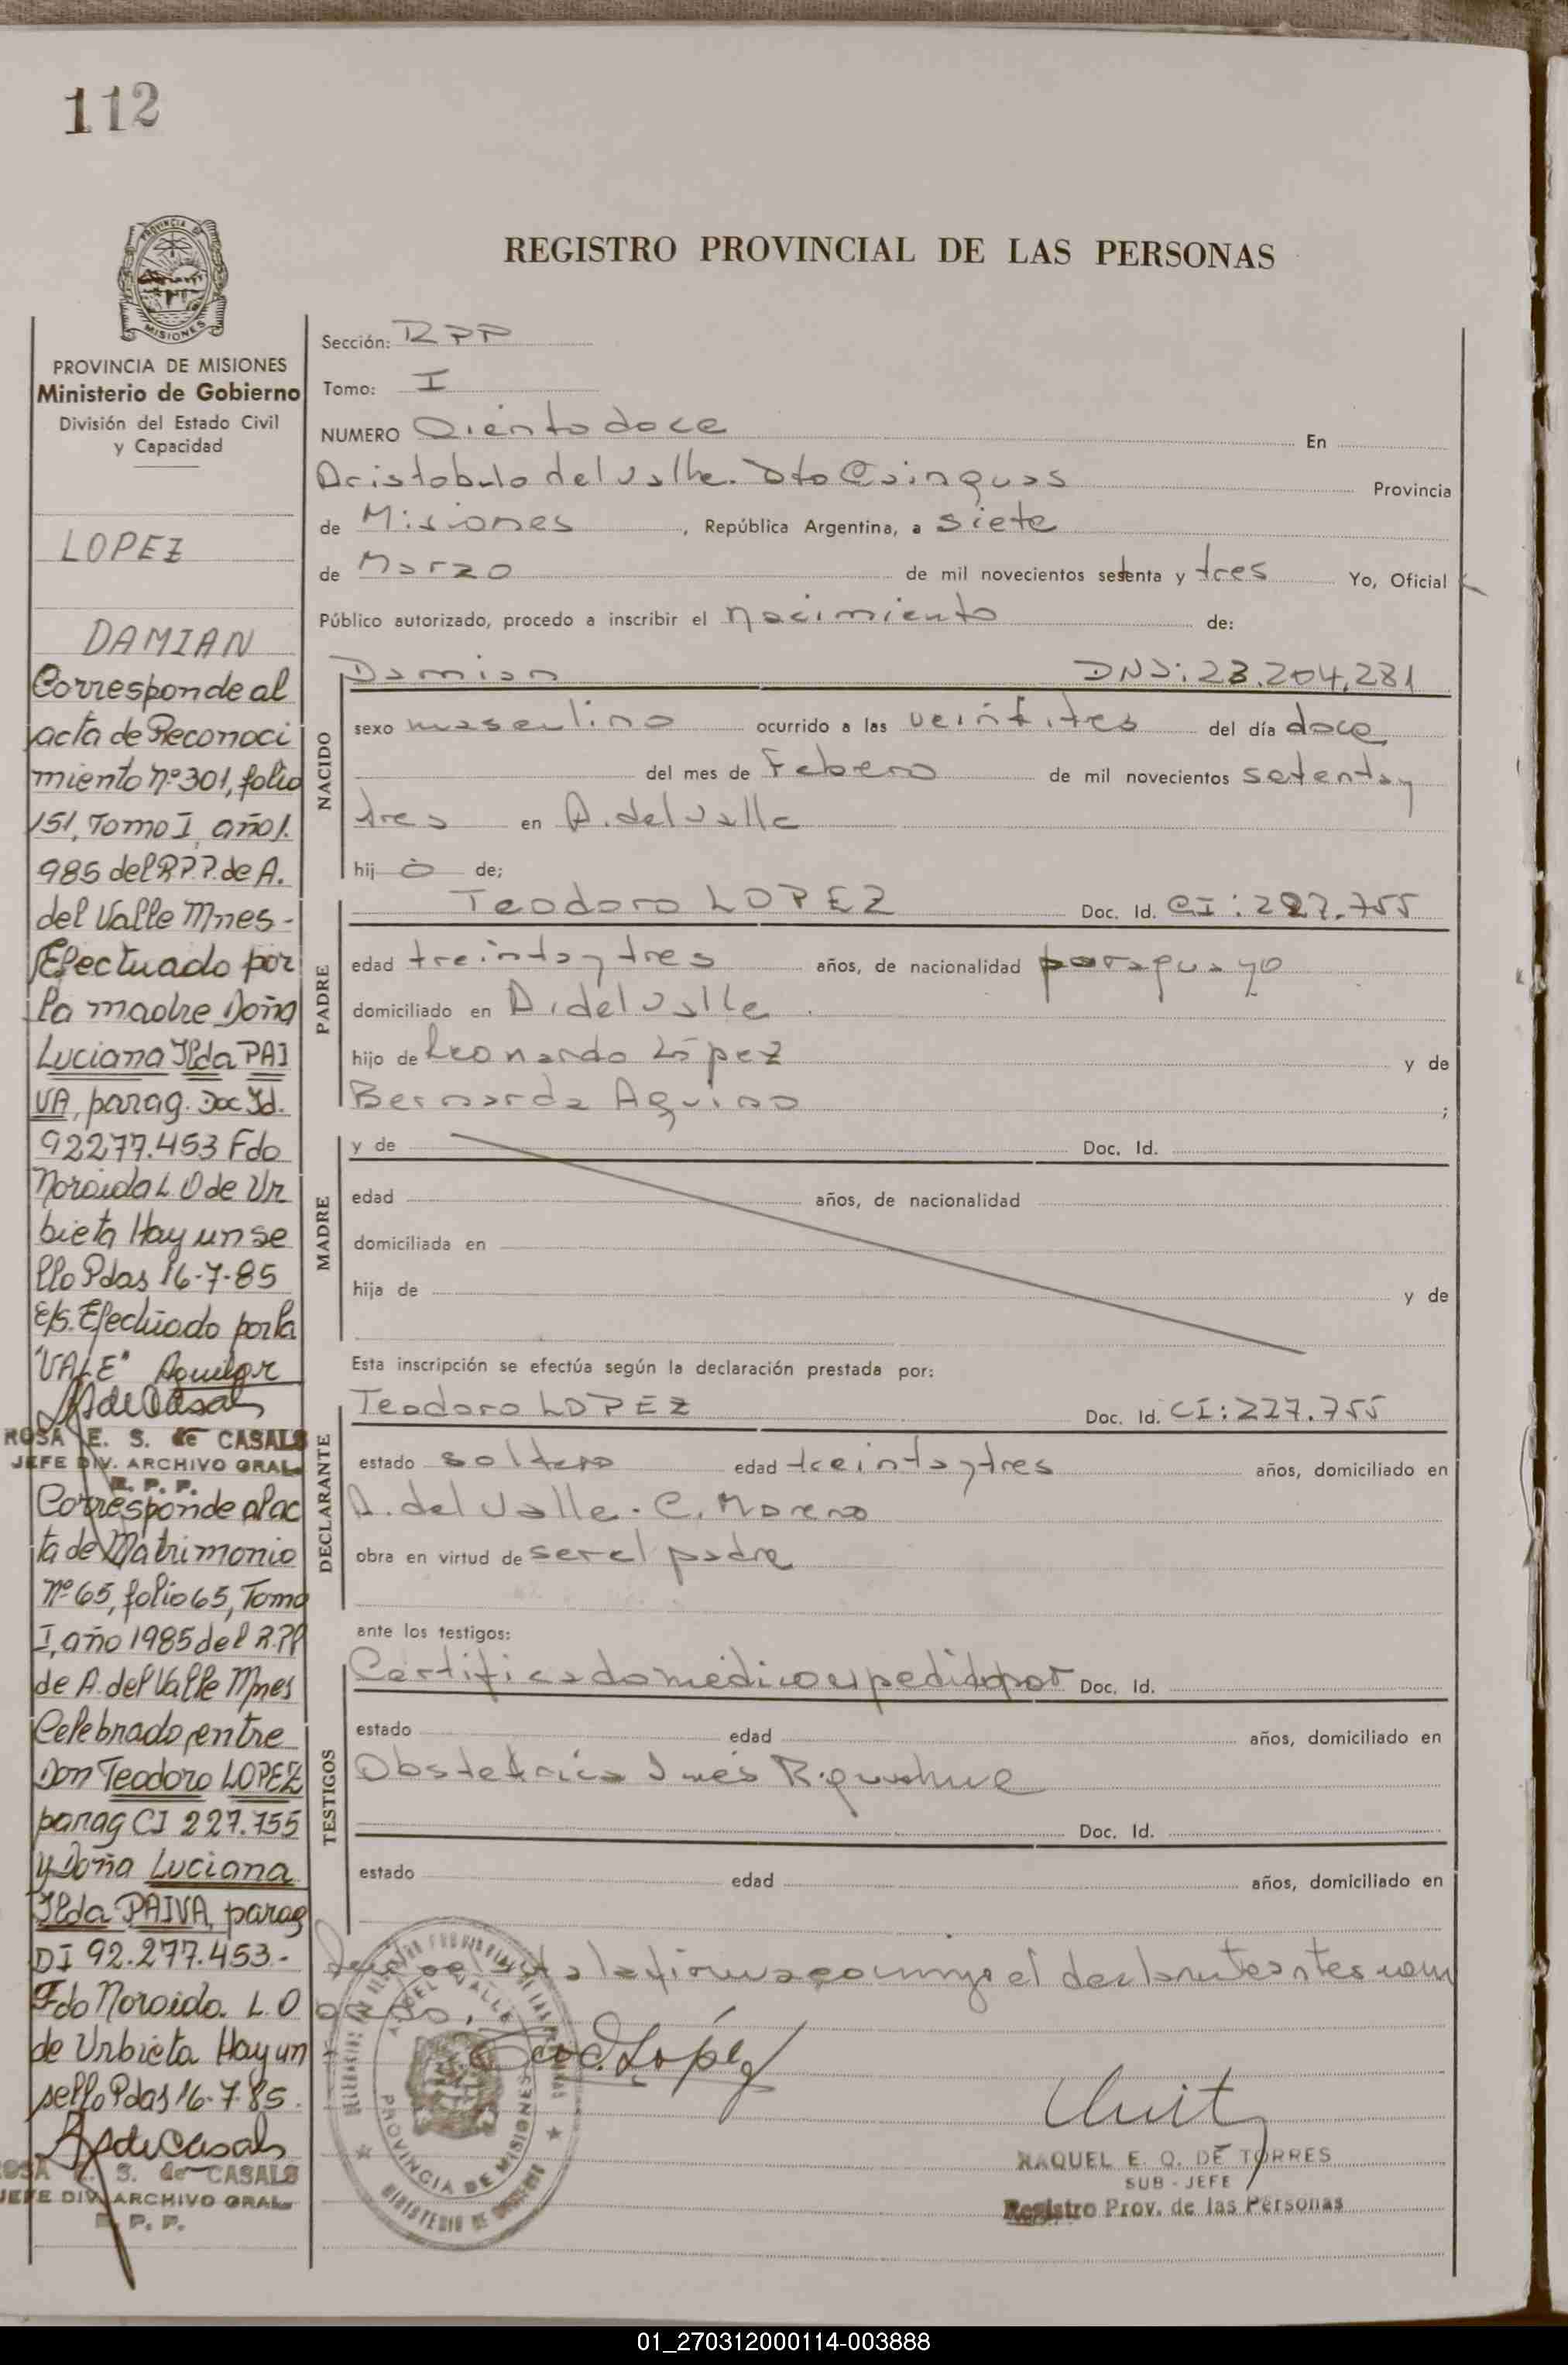 112
PROVINCIA DE MISIONES
Ministerio de Gobierno
División del Estado Civil
y Capacidad
LOPEZ
DAMIAN
Corresponde al
acta de Reconoci
miento nº 301, folio
151, Tomo I, año 1.
985 del R.P.P. de A.
del Valle Mnes-
Efectuado por
la madre Doña
Luciana Ilda PAI
VA, parag. Doc Id.
92277.453 Fdo
Noroida L. O de Ur
bieta Hay un se
llo Pdas 16-7-85
e/s. Efectuado por la
"VALE" Aguilar
ROSA E. S. de CASALS
JEFE DIV. ARCHIVO GRAL.
R. P. P.
Corresponde al ac
ta de Matrimonio
nº 65, folio 65, Tomo
I, año 1985 del R.PP
de A. del Valle Mnes
Celebrado entre
Don Teodoro LOPEZ
parag CI 227.755
y Doña Luciana
Ilda PAIVA, parag
DI 92.277.453.-
Fdo Noroida. L. O
de Urbieta Hay un
sello Pdas 16-7-85.
ROSA E. S. de CASALS
JEFE DIV. ARCHIVO GRAL.
R. P. P.
REGISTRO PROVINCIAL DE LAS PERSONAS
Sección: RPP
Tomo: I
NUMERO Ciento doce En
Aristobulo del Valle. Dto Cainguas Provincia
de Misiones, República Argentina, a siete
de Marzo de mil novecientos setenta y tres Yo, Oficial
Público autorizado, procedo a inscribir el nacimiento de:
Damian DNI: 23.204.281
NACIDO
sexo masculino ocurrido a las veintitres del día doce
del mes de Febrero de mil novecientos setenta y
tres en A. del Valle
hij o de;
PADRE
Teodoro LOPEZ Doc. Id. CI: 227.755
edad treinta y tres años, de nacionalidad paraguayo
domiciliado en A. del Valle
hijo de Leonardo López y de
Bernarda Aquino ;
MADRE
y de Doc. Id.
edad años, de nacionalidad
domiciliada en
hija de y de
Esta inscripción se efectúa según la declaración prestada por:
DECLARANTE
Teodoro LOPEZ Doc. Id. CI: 227.755
estado soltero edad treinta y tres años, domiciliado en
A. del Valle. C. Moreno
obra en virtud de ser el padre
ante los testigos:
TESTIGOS
Certificado médico expedido por Doc. Id.
estado edad años, domiciliado en
Obstetrica Inés
Doc. Id.
estado edad años, domiciliado en
acta la firma conmigo el declarante antes nom
Teod. López
A. DEL VALLE
PROVINCIA DE MISIONES
RAQUEL E. O. DE TORRES
SUB - JEFE
Registro Prov. de las Personas
01_270312000114-003888